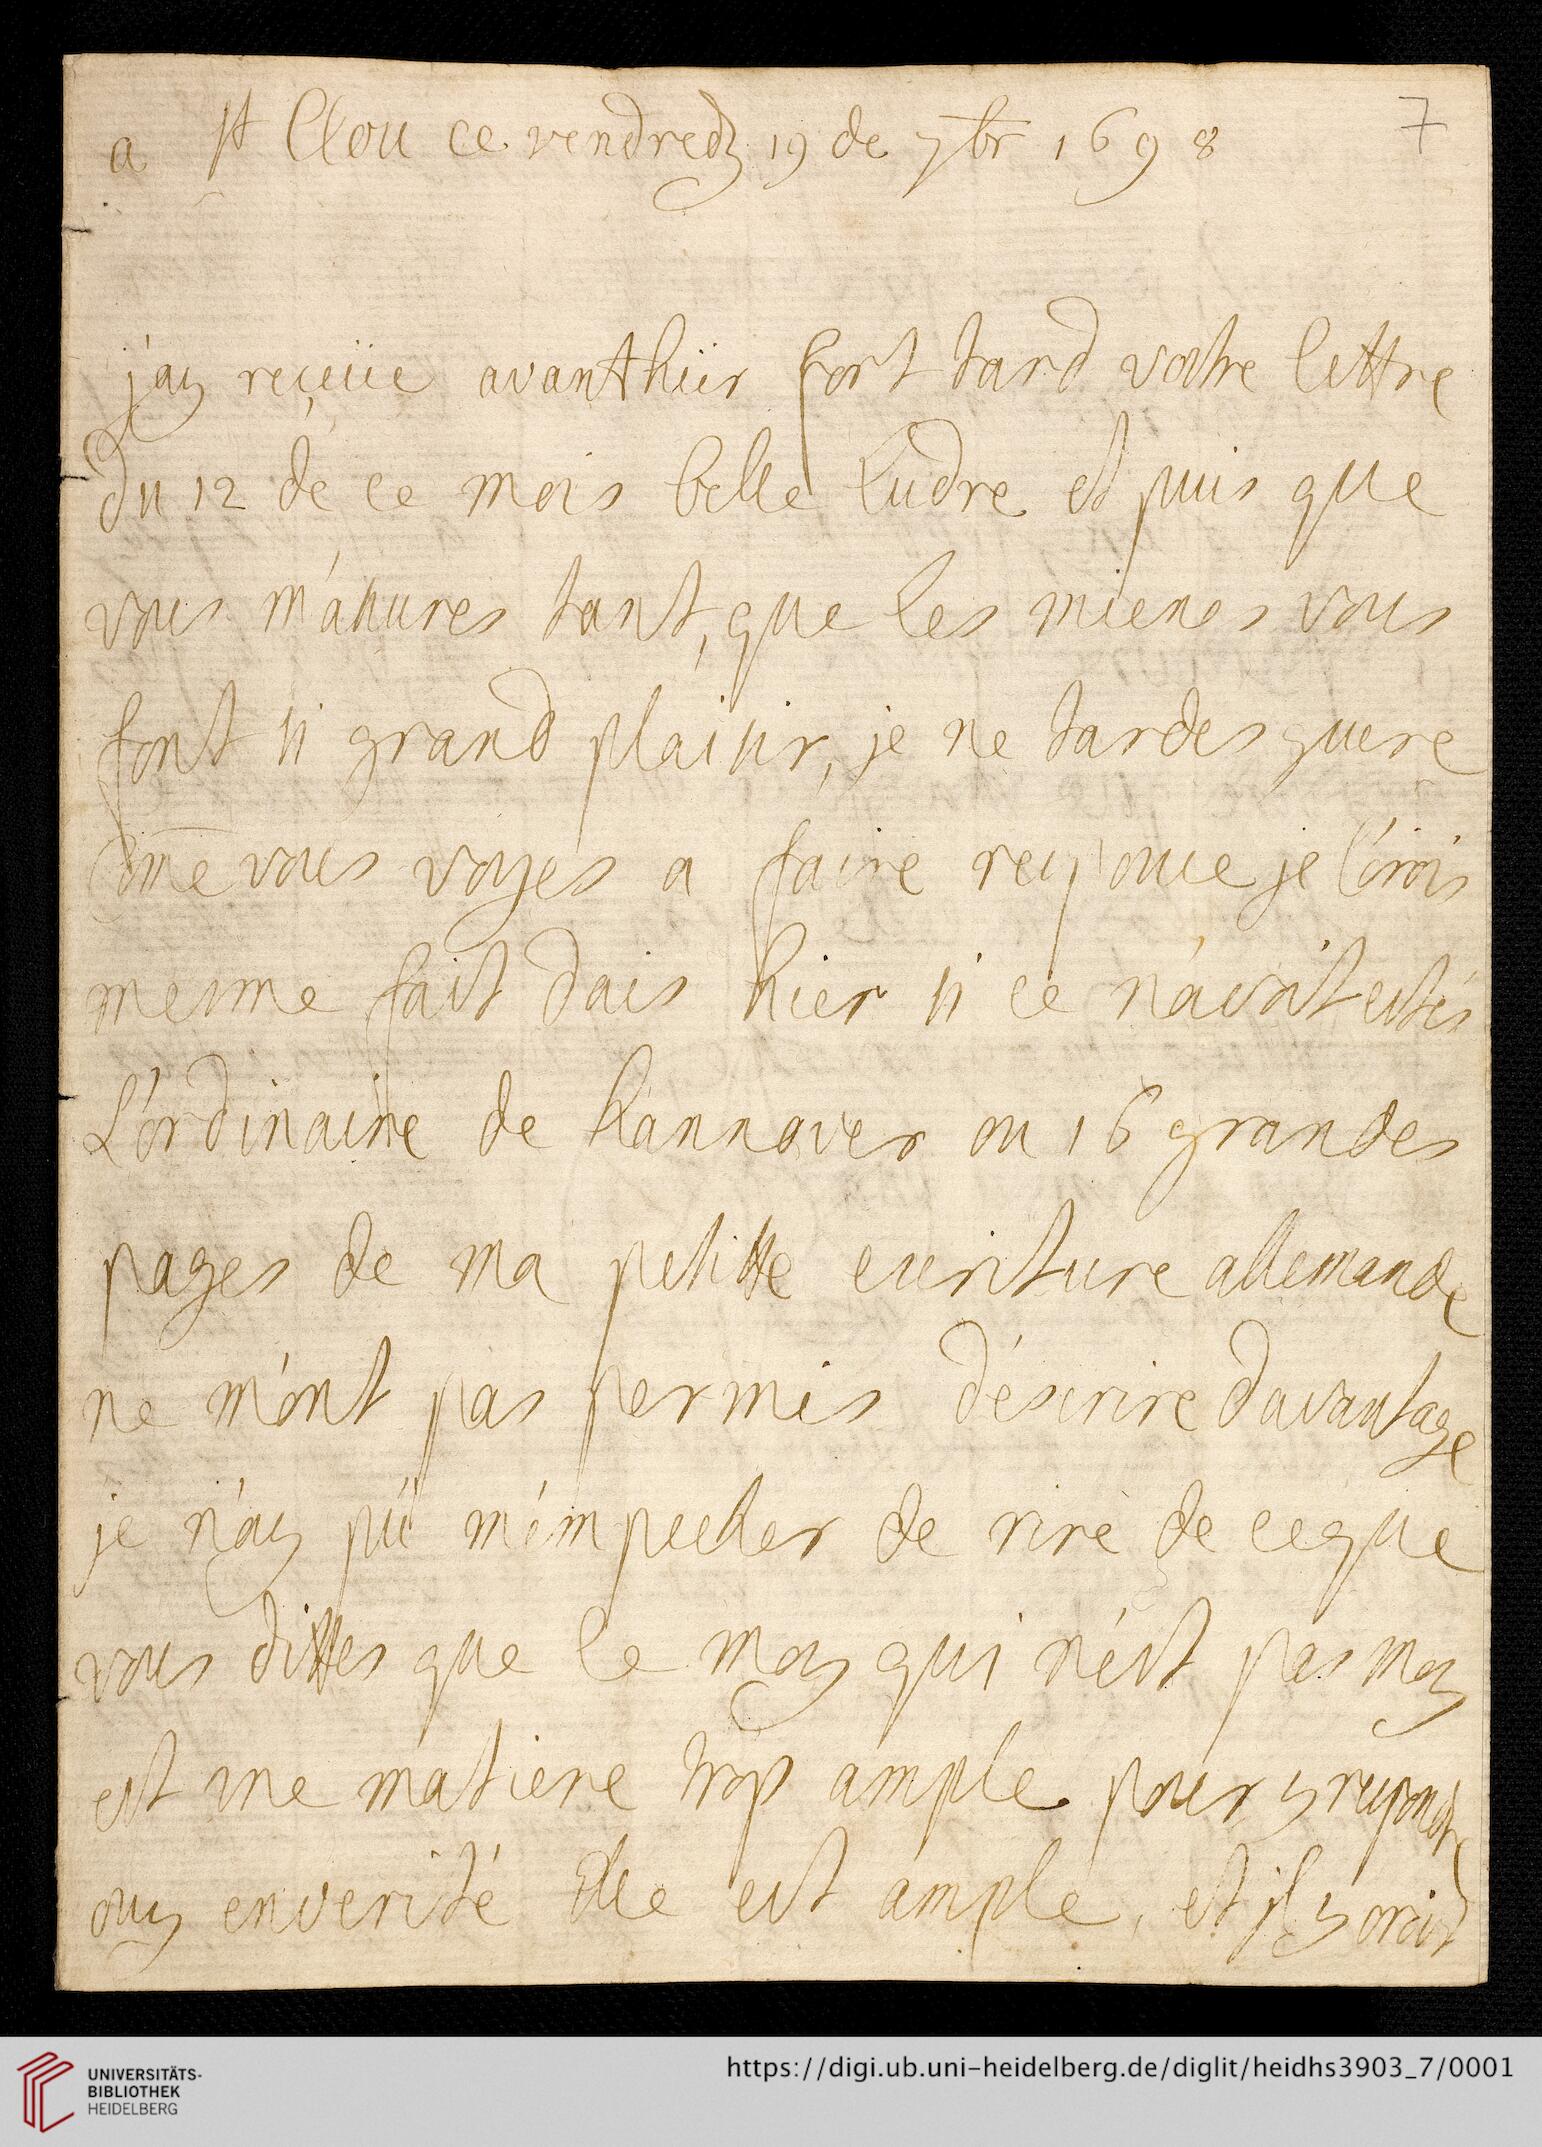 a st Clou ce vendredy 19 de 7br 1698
7
j'ay reçeüe avanthier fort tard vostre lettre
du 12 de ce mois belle Ludre et puis que
vous m'assures tant, que les mienes vous
font si grand plaisir, je ne tardes guere
come vous voyes a faire responce je l'orois
mesme fait dais hier si ce n'avoit estés
L'ordinaire de hannover ou 16 grandes
pages de ma petitte escriture allemande
ne m'ont pas permis d'escrire davantage
je n'ay pü m'empecher de rire de ce que
vous dittes que le moy qui n'est pas moy
est une matiere trop ample pour y respondre
ouy en verité elle est ample, et jl y orait
UNIVERSITÄTS-
BIBLIOTHEK
HEIDELBERG
https://digi.ub.uni-heidelberg.de/diglit/heidhs3903_7/0001